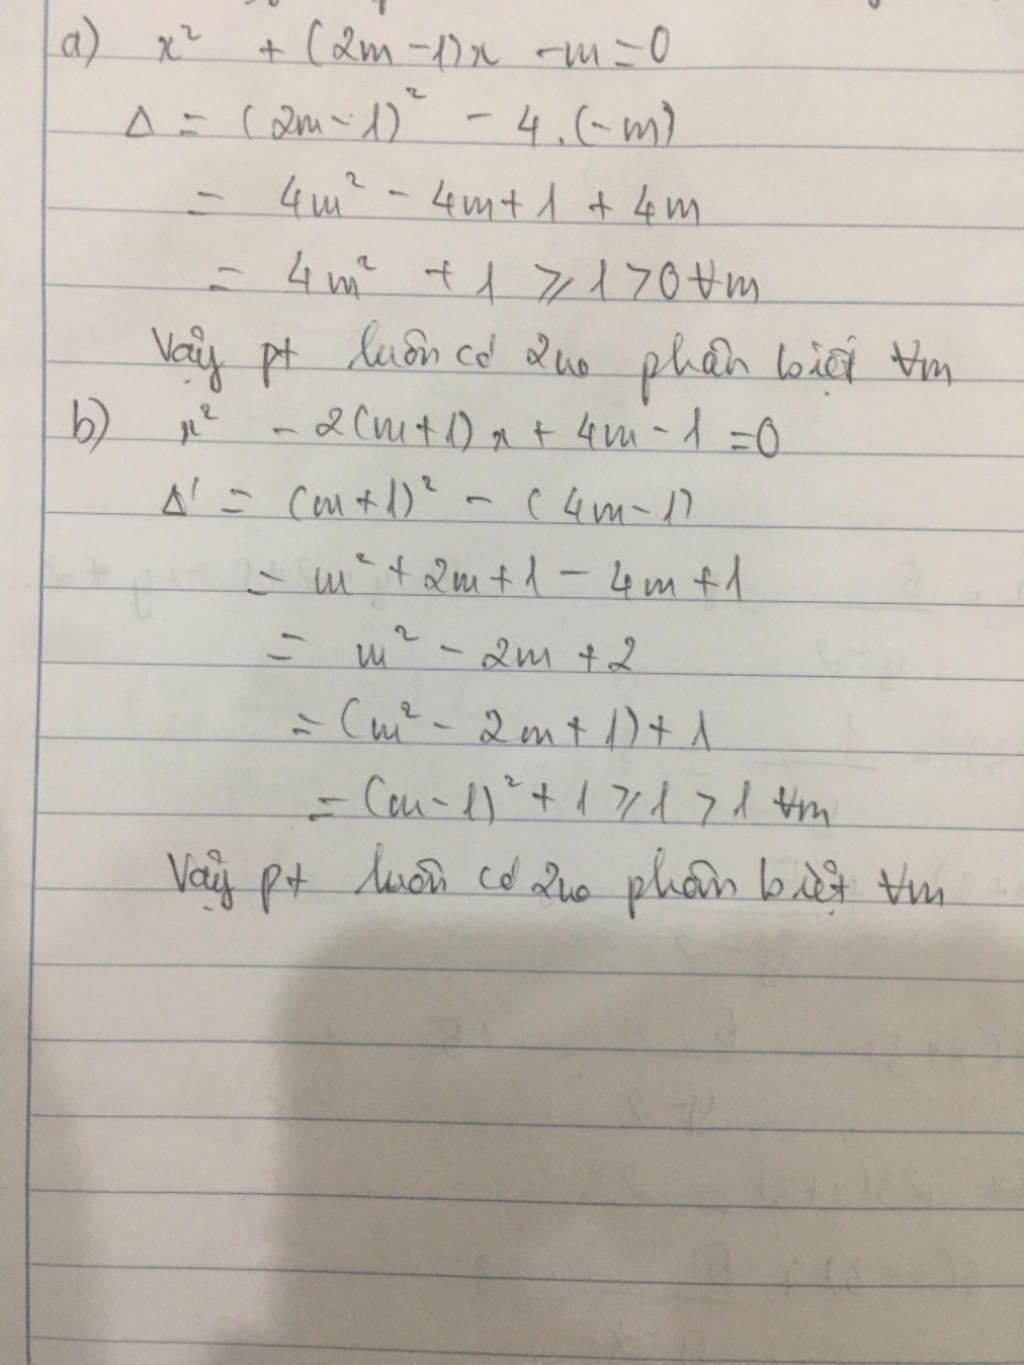 a) x² + (2m-1)x -m=0
Δ = (2m-1)² - 4.(-m)
= 4m² - 4m+1 + 4m
= 4m² + 1 ⩾ 1 > 0 ∀m
Vậy pt luôn có 2no phân biệt ∀m
b) x² - 2(m+1)x + 4m-1 =0
Δ' = (m+1)² - (4m-1)
= m² + 2m+1 - 4m +1
= m² - 2m +2
= (m² - 2m+1)+1
= (m-1)² + 1 ⩾ 1 > 1 ∀m
Vậy pt luôn có 2no phân biệt ∀m